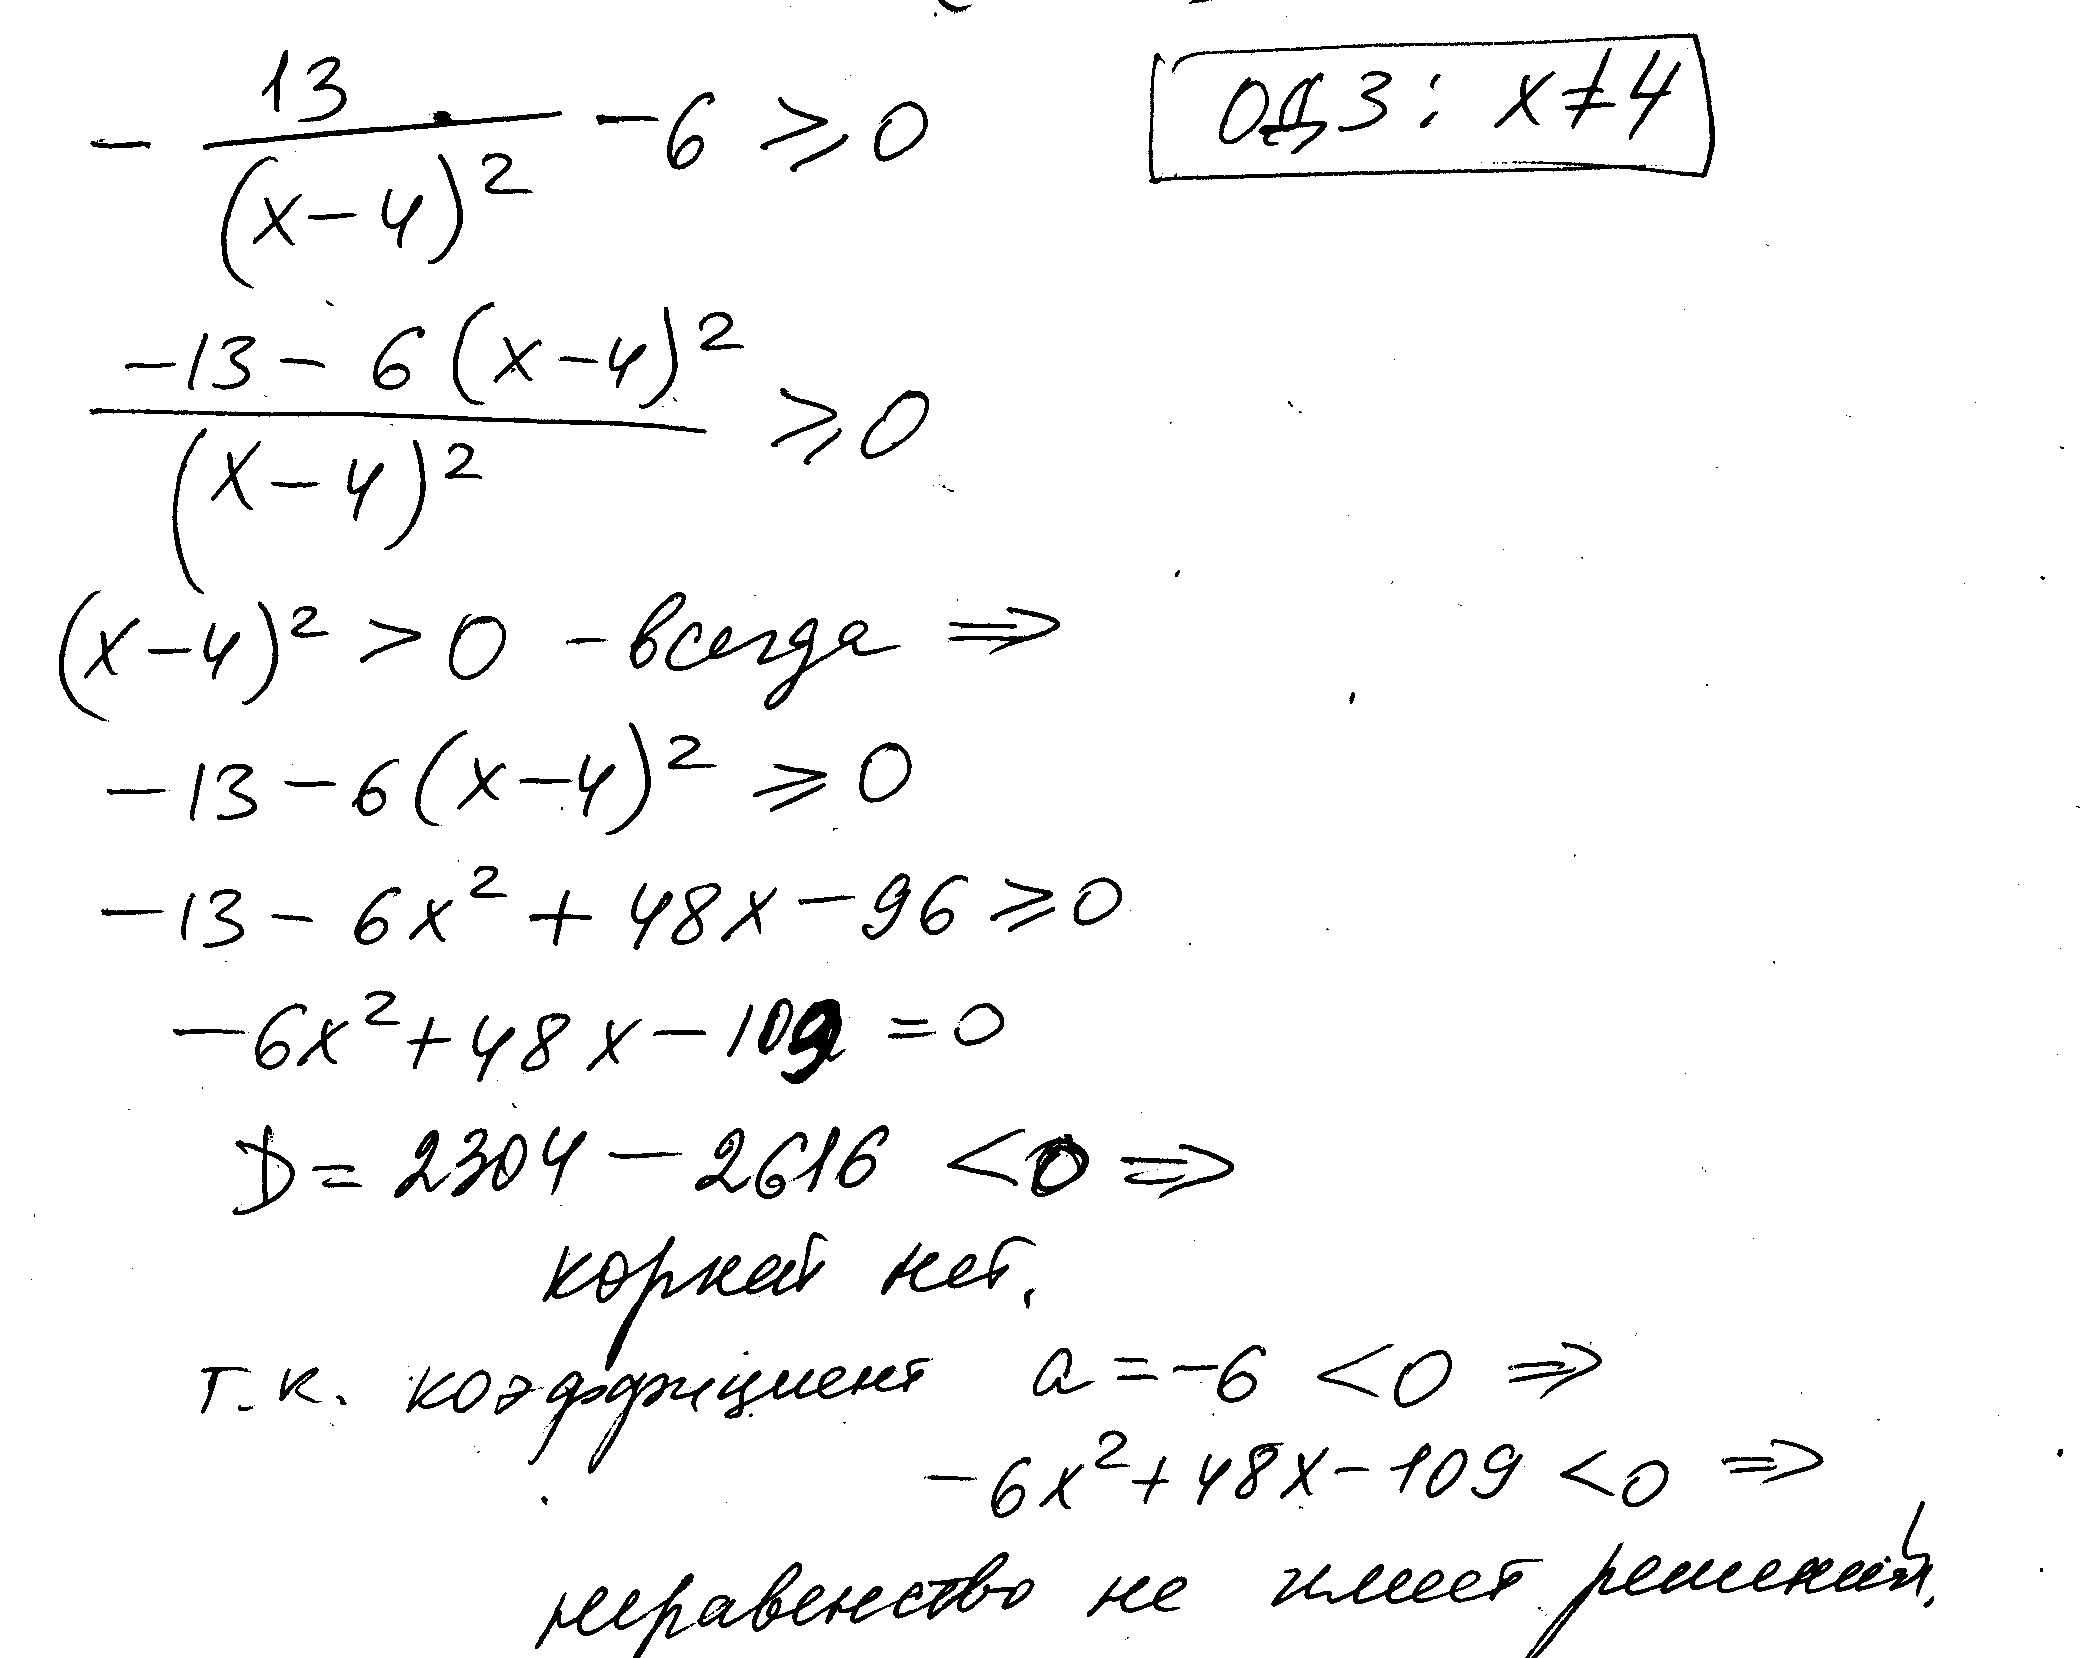 - 13/(x-4)² - 6 ⩾ 0 ОДЗ: x≠4
(-13 - 6(x-4)²)/(x-4)² ⩾ 0
(x-4)² > 0 - всегда ⇒
-13 - 6(x-4)² ⩾ 0
-13 - 6x² + 48x - 96 ⩾ 0
-6x² + 48x - 109 = 0
D = 2304 - 2616 < 0 ⇒
корней нет.
т.к. коэффициент a = -6 < 0 ⇒
-6x² + 48x - 109 < 0 ⇒
неравенство не имеет решений.